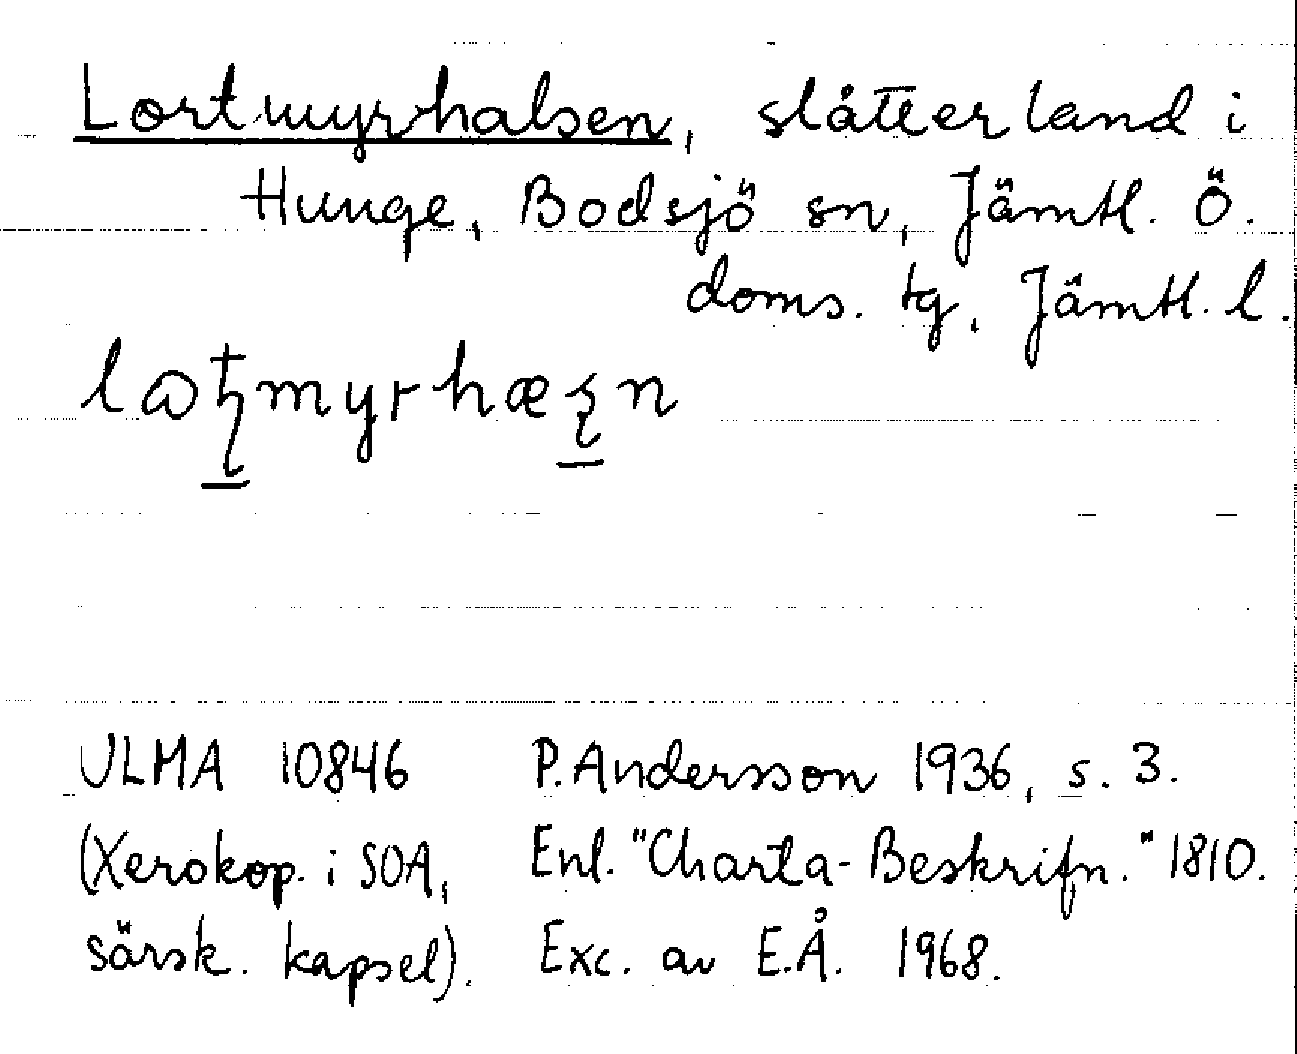 Lortmyrhalsen, slåtterland i
Hunge, Bodsjö sn, Jämtl. Ö.
doms. tg, Jämtl. l.
ULMA 10846 P. Andersson 1936, s. 3.
(Xerokop. i SOA, Enl. "Charta-Beskrifn." 1810.
särsk. kapsel). Exc. av E.Å. 1968.